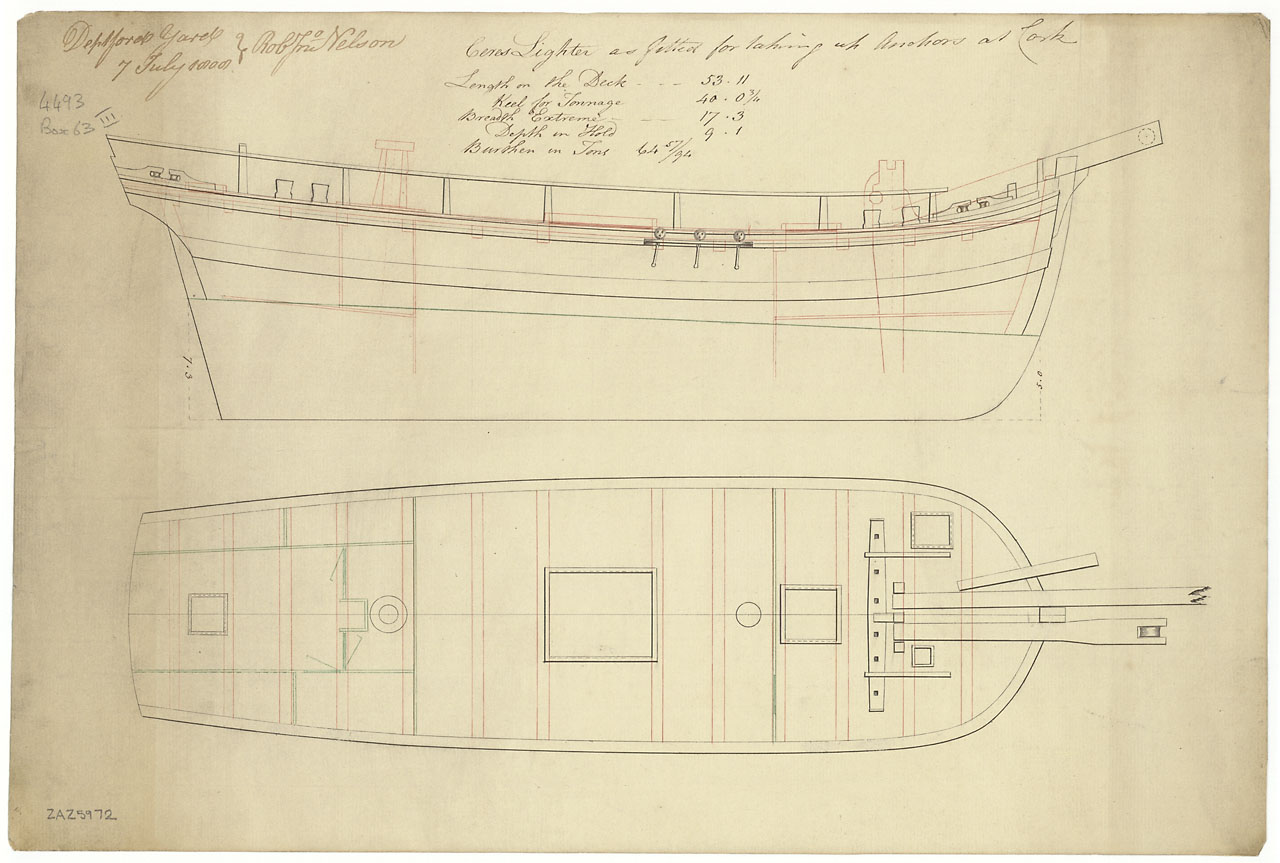 Deptford Yard } Rob.t Jn.o Nelson
7 July 1808
Ceres Lighter as fitted for taking up Anchors at Cork
Length on the Deck - - - 53.11
Keel for Tonnage 40.0 3/4
Breadth Extreme - - - 17.3
Depth in Hold 9.1
Burthen in Tons 64 57/94
4493
Box 63
7.3
5.0
ZAZ5972